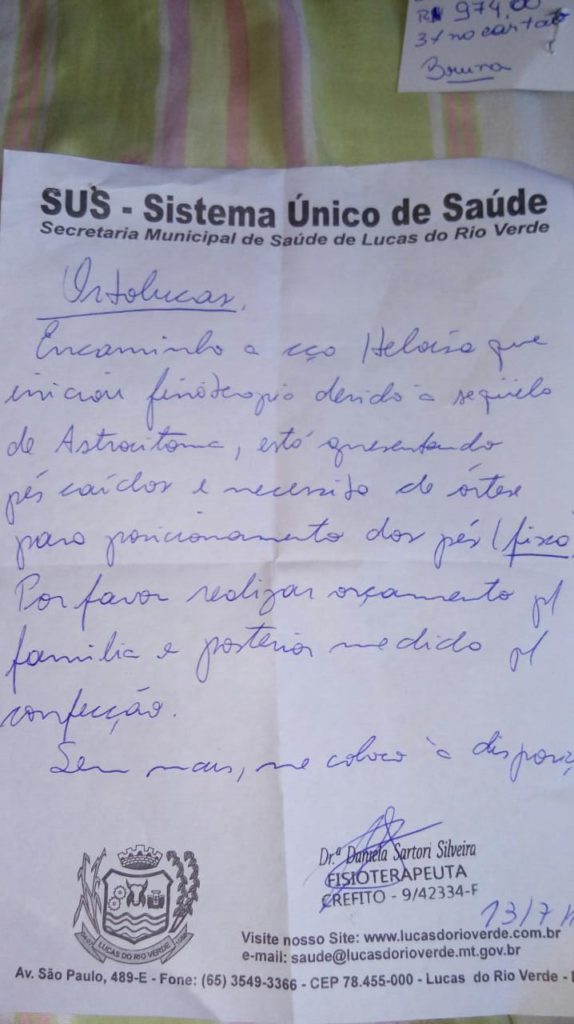 R$ 974,00
3x no cartão
Bruna
SUS - Sistema Único de Saúde
Secretaria Municipal de Saúde de Lucas do Rio Verde
Ortolucas,
Encaminho a Heloisa que
iniciou fisioterapia devido à sequela
de Astrocitoma, está apresentando
pés caídos e necessita de órtese
para posicionamento dos pés (fixa)
Por favor realizar orçamento p/
família e posterior medida p/
confecção.
Sem mais, me coloco à disposiç
Dr.ª Daniela Sartori Silveira
FISIOTERAPEUTA
CREFITO - 9/42334-F
13/7
LUCAS DO RIO VERDE
Visite nosso Site: www.lucasdorioverde.com.br
e-mail: saude@lucasdorioverde.mt.gov.br
Av. São Paulo, 489-E - Fone: (65) 3549-3366 - CEP 78.455-000 - Lucas do Rio Verde -